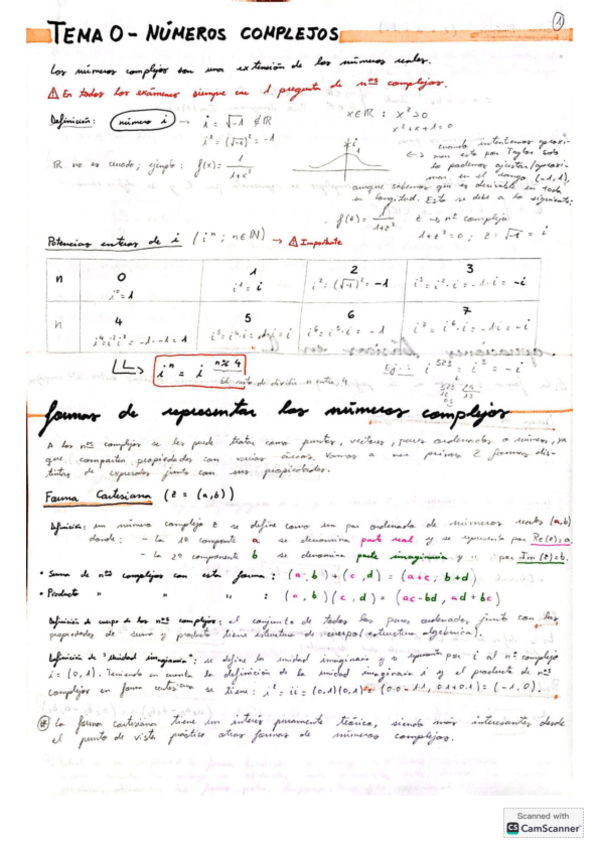 1
TEMA 0 - NÚMEROS COMPLEJOS
Los números complejos son una extensión de los números reales.
⚠ En todos los exámenes siempre cae 1 pregunta de nºs complejos.
Definición: número i → i = √-1 ∉ ℝ
i² = (√-1)² = -1
x∈ℝ : x² > 0
x² + x + 1 = 0
ℝ no es cerrado; ejemplo: f(x) = 1/1+x²
<-> cuando intentemos aproximar esto por Taylor solo
lo podemos ajustar/aproximar en el rango (-1,1),
aunque sabemos que es derivable en toda
su longitud. Esto se debe a lo siguiente:
f(z) = 1/1+z² z → nº complejo
1+z² = 0 ; z = √-1 = i
Potencias enteras de i (iⁿ ; n∈ℕ) → ⚠ Importante
n 0 1 2 3
i⁰ = 1 i¹ = i i² = (√-1)² = -1 i³ = i²·i = -1·i = -i
n 4 5 6 7
i⁴ = i²·i² = -1·-1 = 1 i⁵ = i⁴·i = 1·i = i i⁶ = i⁵·i = -1 i⁷ = i⁶·i = -1·i = -i
iⁿ = i^(n%4)
El resto de dividir n entre 4
Ej.: i⁵²³ = i³ = -i
formas de representar los números complejos
A los nºs complejos se les puede tratar como puntos, vectores, pares ordenados o números, ya
que comparten propiedades con varias áreas. Vamos a ver primero 2 formas distintas
de expresarlos junto con sus propiedades.
Forma Cartesiana (z = (a,b))
Definición: un número complejo z se define como un par ordenado de números reales (a,b)
donde: - la 1ª componente a se denomina parte real y se representa por Re(z)=a.
- la 2ª componente b se denomina parte imaginaria y por Im(z)=b.
• Suma de nºs complejos con esta forma: (a,b)+(c,d) = (a+c, b+d)
• Producto " " " " : (a,b)(c,d) = (ac-bd, ad+bc)
Definición de cuerpo de los nºs complejos: el conjunto de todos los pares ordenados junto con las
propiedades de suma y producto tiene estructura de cuerpo (estructura algebraica).
Definición de "unidad imaginaria": se define la unidad imaginaria y se representa por i al nº complejo
i = (0,1). Teniendo en cuenta la definición de la unidad imaginaria i y el producto de nºs
complejos en forma cartesiana se tiene: i² = ii = (0,1)(0,1) = (0·0-1·1, 0·1+0·1) = (-1,0).
La forma cartesiana tiene un interés puramente teórico, siendo más interesantes desde
el punto de vista práctico otras formas de números complejos.
Scanned with
CS CamScanner